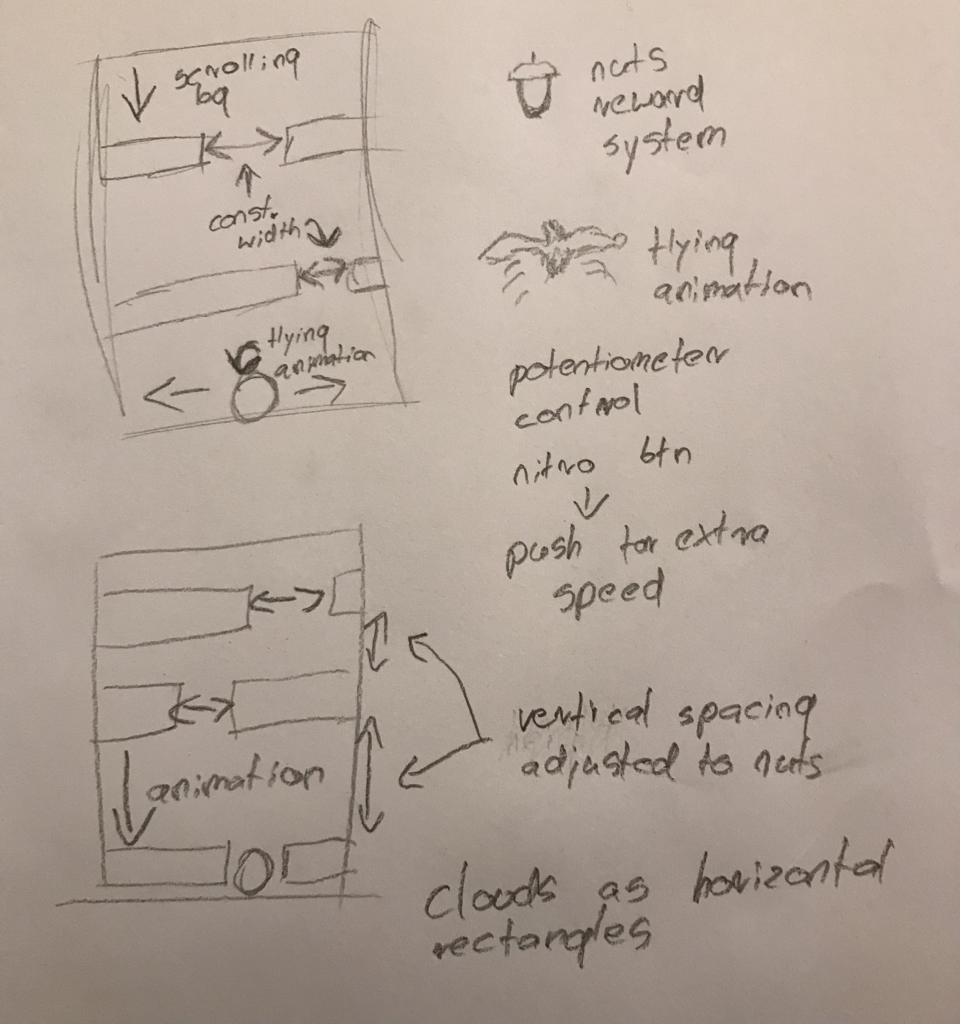 scrolling
bg
const.
width
flying
animation
nuts
reward
system
flying
animation
potentiometer
control
nitro btn
push for extra
speed
animation
vertical spacing
adjusted to nuts
clouds as horizontal
rectangles